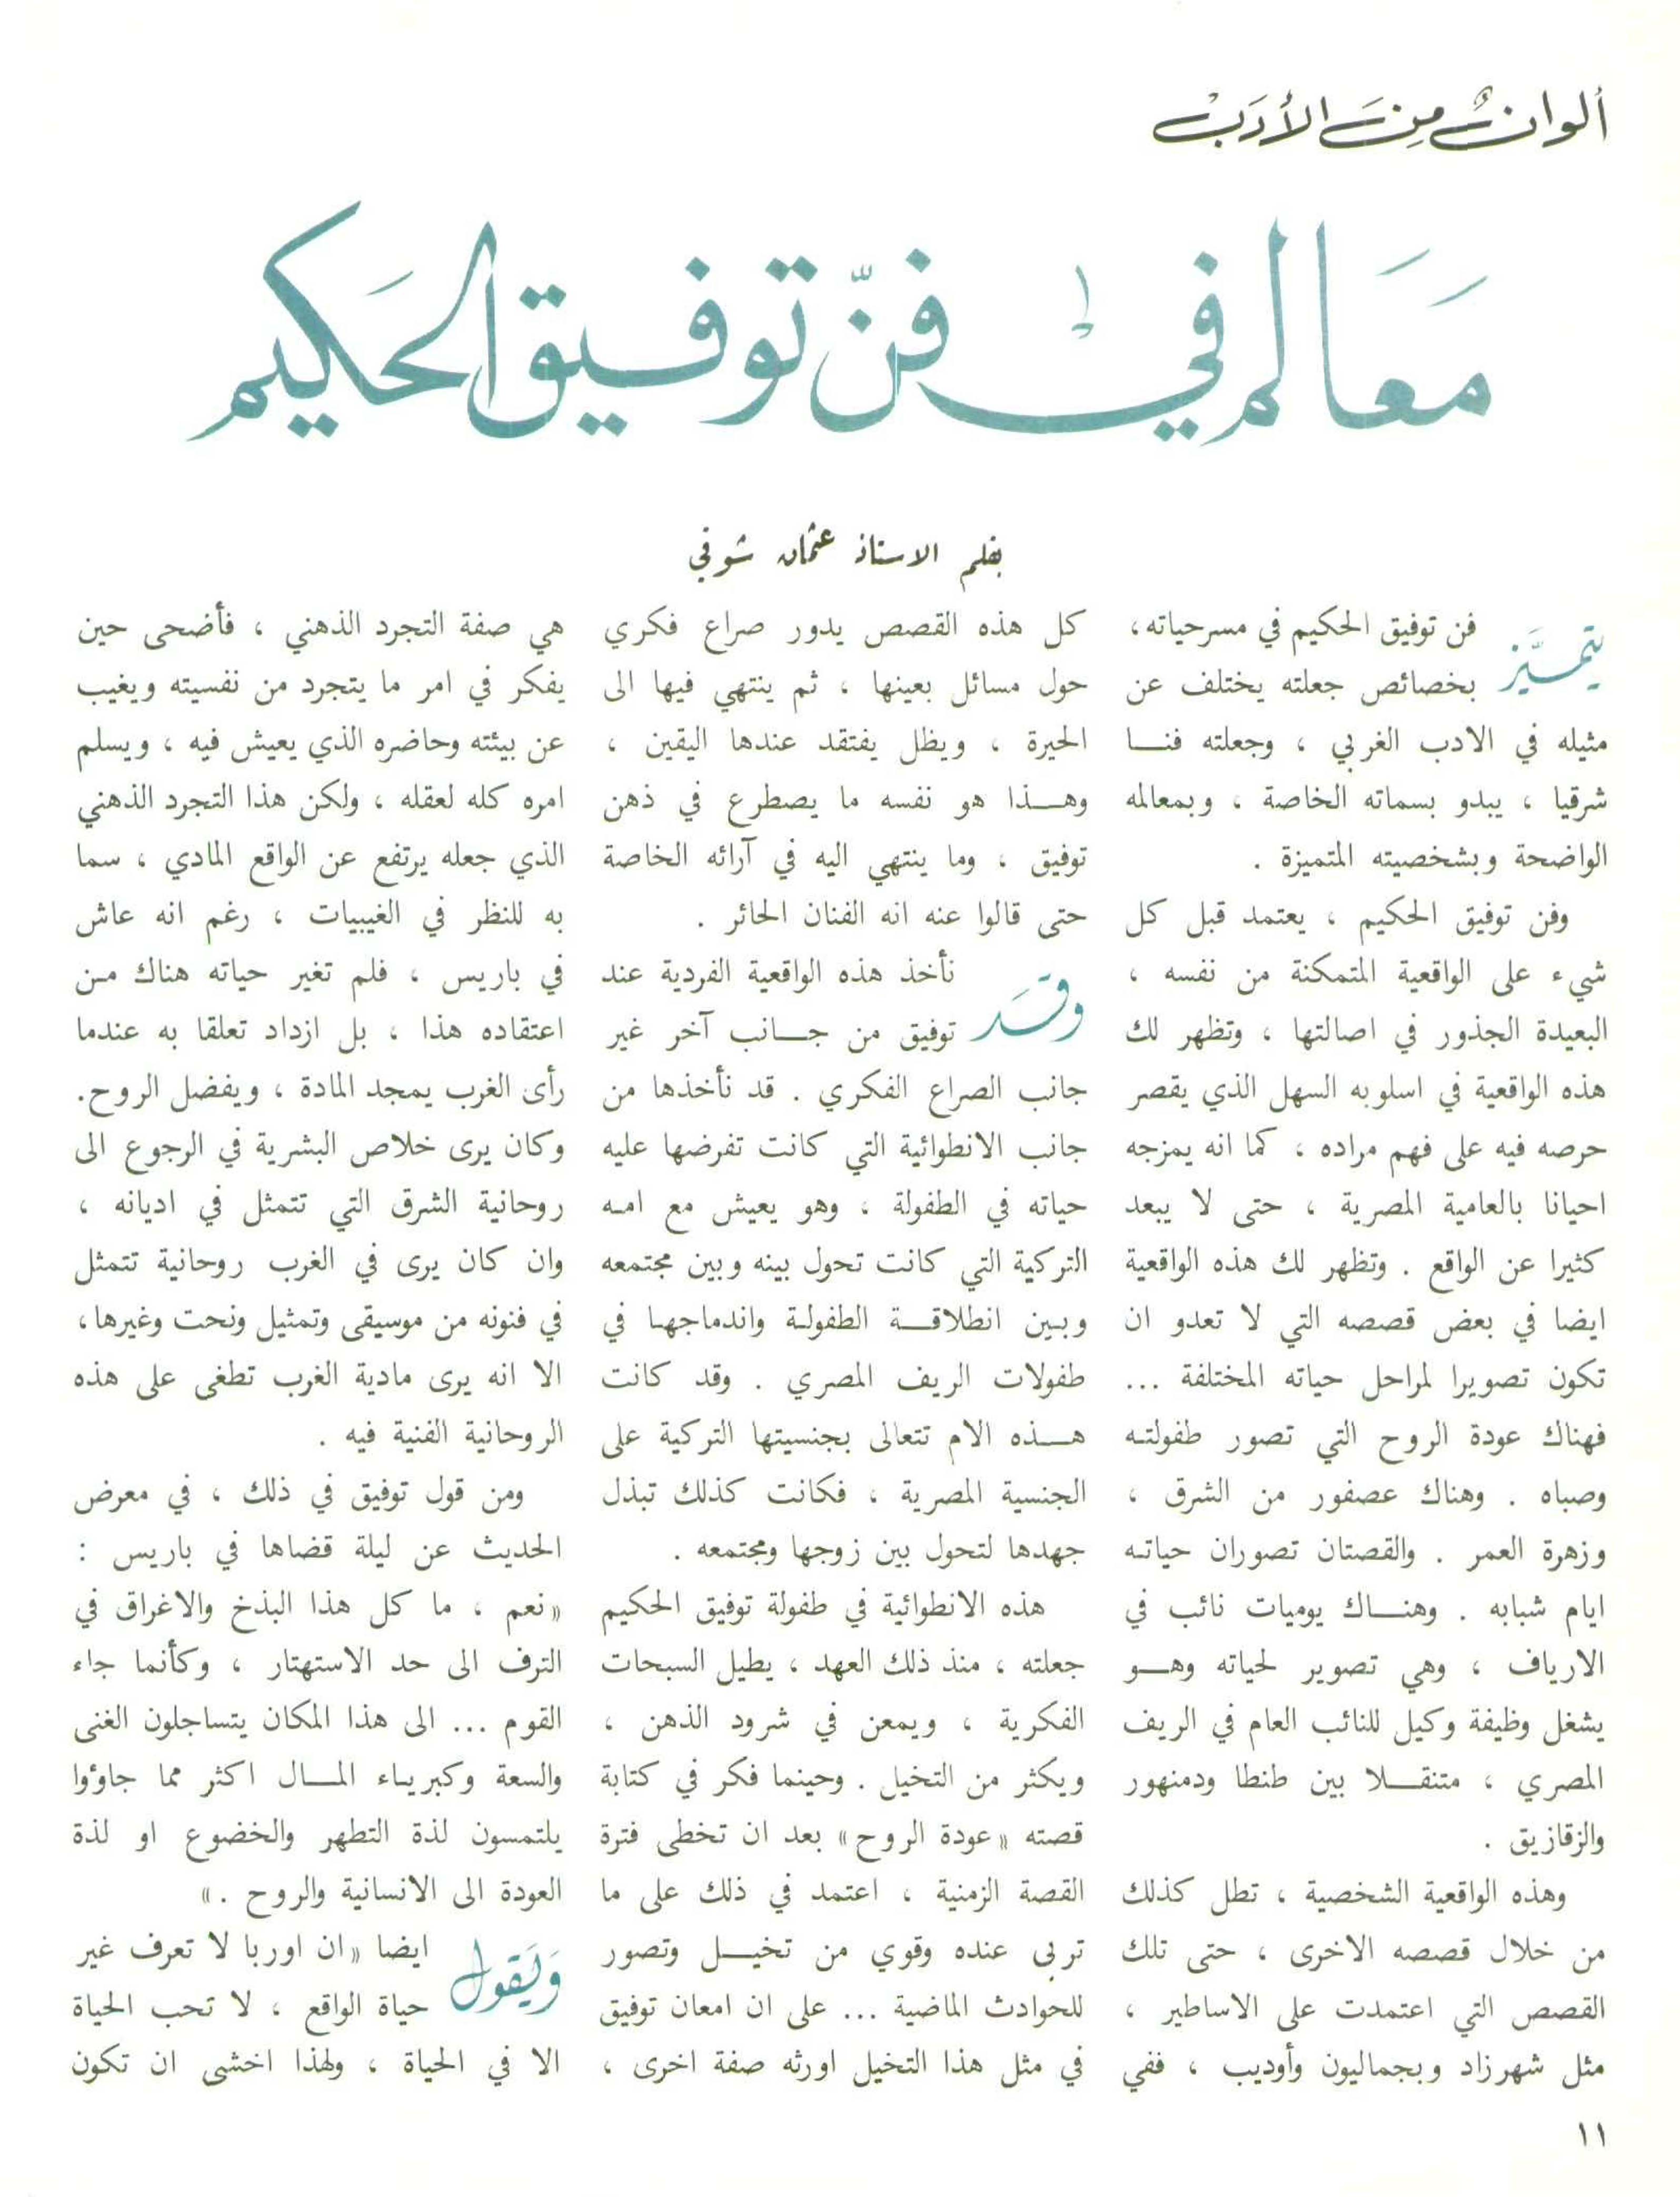 ألوانٌ مِنَ الأدَبْ
مَعَالم في فنّ توفيق الحَكيم
بقلم الاستاذ عثمان شوقي
يتميَّز فن توفيق الحكيم في مسرحياته،
بخصائص جعلته يختلف عن
مثيله في الادب الغربي ، وجعلته فنـا
شرقيا ، يبدو بسماته الخاصة ، وبمعالمه
الواضحة وبشخصيته المتميزة .
وفن توفيق الحكيم ، يعتمد قبل كل
شيء على الواقعية المتمكنة من نفسه ،
البعيدة الجذور في اصالتها ، وتظهر لك
هذه الواقعية في اسلوبه السهل الذي يقصر
حرصه فيه على فهم مراده ، كما انه يمزجه
احيانا بالعامية المصرية ، حتى لا يبعد
كثيرا عن الواقع . وتظهر لك هذه الواقعية
ايضا في بعض قصصه التي لا تعدو ان
تكون تصويرا لمراحل حياته المختلفة ...
فهناك عودة الروح التي تصور طفولته
وصباه . وهناك عصفور من الشرق ،
وزهرة العمر . والقصتان تصوران حياته
ايام شبابه . وهنـاك يوميات نائب في
الارياف ، وهي تصوير لحياته وهـو
يشغل وظيفة وكيل للنائب العام في الريف
المصري ، متنقـلا بين طنطا ودمنهور
والزقازيق .
وهذه الواقعية الشخصية ، تطل كذلك
من خلال قصصه الاخرى ، حتى تلك
القصص التي اعتمدت على الاساطير ،
مثل شهرزاد وبجماليون وأوديب ، ففي
كل هذه القصص يدور صراع فكري
حول مسائل بعينها ، ثم ينتهي فيها الى
الحيرة ، ويظل يفتقد عندها اليقين ،
وهـذا هو نفسه ما يصطرع في ذهن
توفيق ، وما ينتهي اليه في آرائه الخاصة
حتى قالوا عنه انه الفنان الحائر .
وقَد نأخذ هذه الواقعية الفردية عند
توفيق من جـانب آخر غير
جانب الصراع الفكري . قد نأخذها من
جانب الانطوائية التي كانت تفرضها عليه
حياته في الطفولة ، وهو يعيش مع امه
التركية التي كانت تحول بينه وبين مجتمعه
وبين انطلاقـة الطفولة واندماجها في
طفولات الريف المصري . وقد كانت
هـذه الام تتعالى بجنسيتها التركية على
الجنسية المصرية ، فكانت كذلك تبذل
جهدها لتحول بين زوجها ومجتمعه .
هذه الانطوائية في طفولة توفيق الحكيم
جعلته ، منذ ذلك العهد ، يطيل السبحات
الفكرية ، ويمعن في شرود الذهن ،
ويكثر من التخيل . وحينما فكر في كتابة
قصته «عودة الروح» بعد ان تخطى فترة
القصة الزمنية ، اعتمد في ذلك على ما
تربى عنده وقوي من تخيـل وتصور
للحوادث الماضية ... على ان امعان توفيق
في مثل هذا التخيل اورثه صفة اخرى ،
هي صفة التجرد الذهني ، فأضحى حين
يفكر في امر ما يتجرد من نفسيته ويغيب
عن بيئته وحاضره الذي يعيش فيه ، ويسلم
امره كله لعقله ، ولكن هذا التجرد الذهني
الذي جعله يرتفع عن الواقع المادي ، سما
به للنظر في الغيبيات ، رغم انه عاش
في باريس ، فلم تغير حياته هناك من
اعتقاده هذا ، بل ازداد تعلقا به عندما
رأى الغرب يمجد المادة ، ويفضل الروح.
وكان يرى خلاص البشرية في الرجوع الى
روحانية الشرق التي تتمثل في اديانه ،
وان كان يرى في الغرب روحانية تتمثل
في فنونه من موسيقى وتمثيل ونحت وغيرها،
الا انه يرى مادية الغرب تطغى على هذه
الروحانية الفنية فيه .
ومن قول توفيق في ذلك ، في معرض
الحديث عن ليلة قضاها في باريس :
«نعم ، ما كل هذا البذخ والاغراق في
الترف الى حد الاستهتار ، وكأنما جاء
القوم ... الى هذا المكان يتساجلون الغنى
والسعة وكبرياء المـال اكثر مما جاوؤا
يلتمسون لذة التطهر والخضوع او لذة
العودة الى الانسانية والروح .»
وَيَقول ايضا «ان اوربا لا تعرف غير
حياة الواقع ، لا تحب الحياة
الا في الحياة ، ولهذا اخشى ان تكون
١١